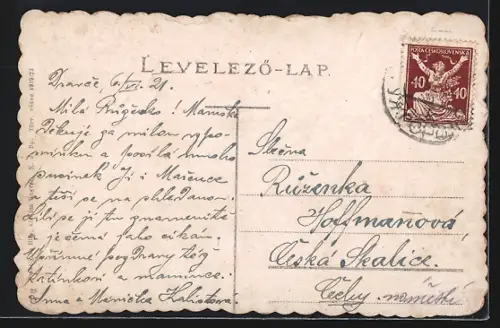 LEVELEZŐ-LAP.
POŠTA ČESKOSLOVENSKÁ
40 40
Dravce, 6/VI. 21.
Milá Růženko! Maminka
Děkuje za milou vzpo-
mínku a posílá mnoho
pusinek Jí i Mařence
a těší se na shledanou.
Líbí se jí tu znamenitě
je černá jako cikán.
Upřímné pozdravy též
tatínkovi a mamince.
Anna a Mařička
Slečna
Růženka
Hoffmanová,
Česká Skalice.
Čechy náměstí